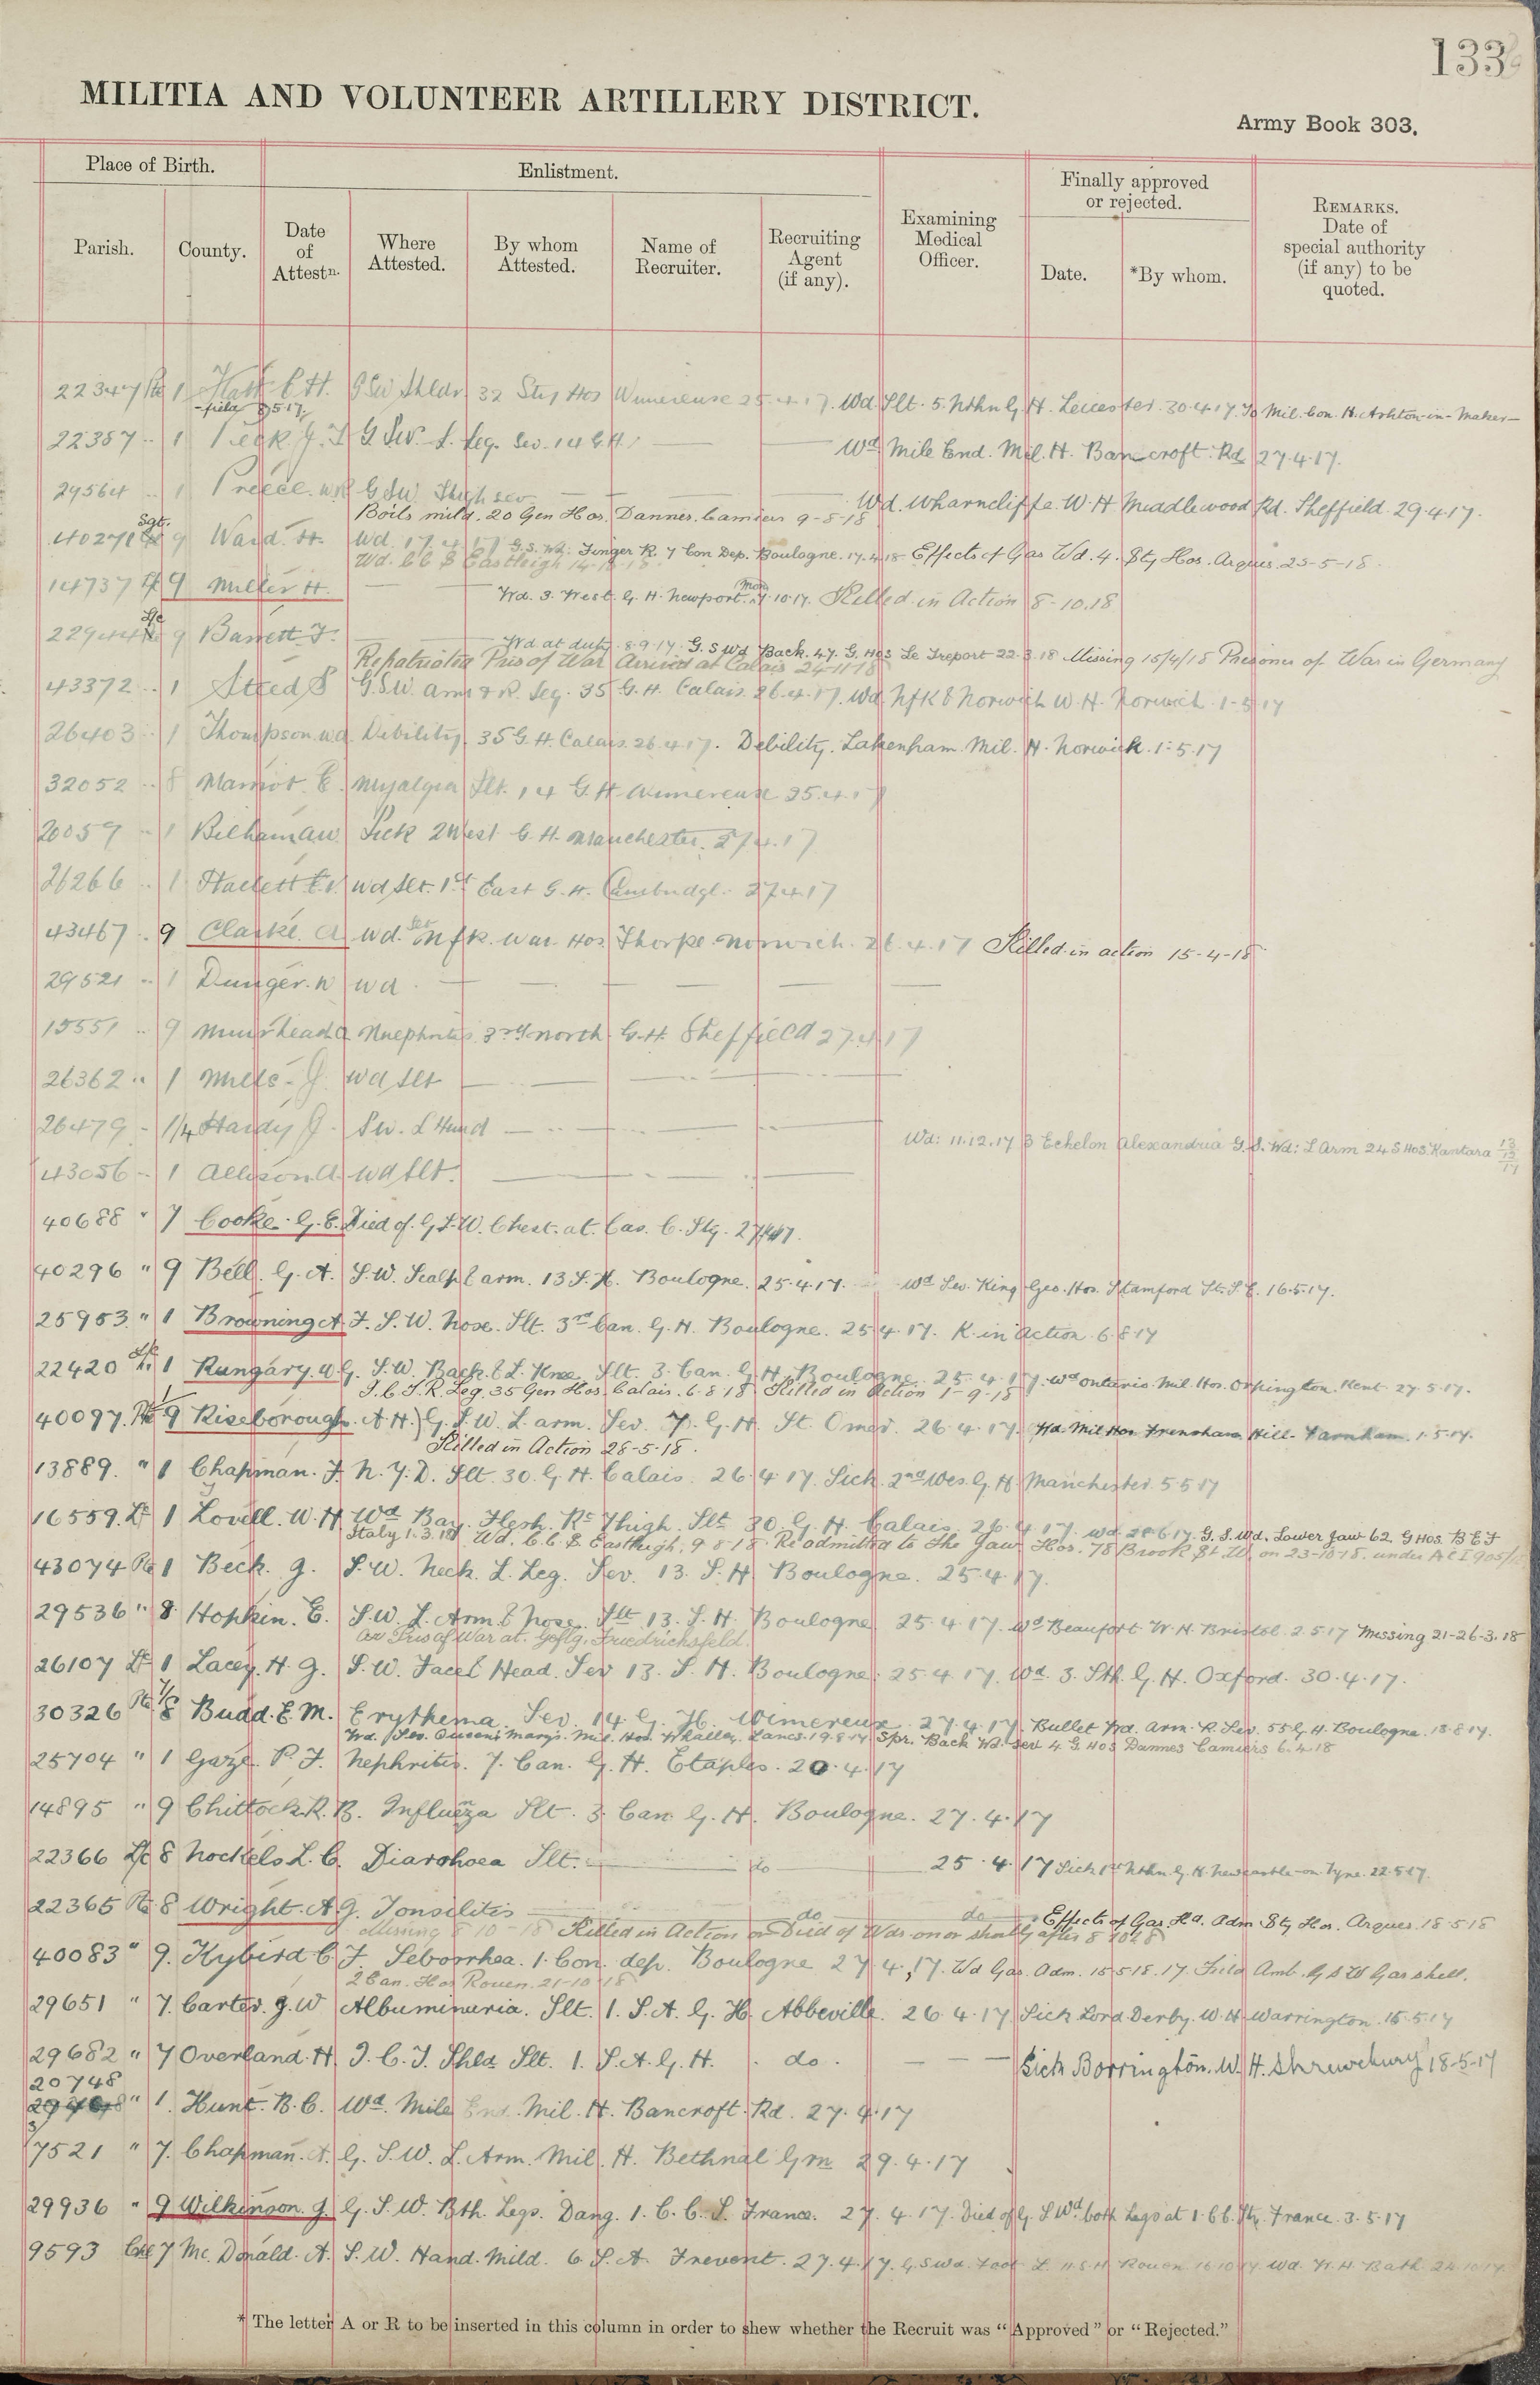 133
MILITIA AND VOLUNTEER ARTILLERY DISTRICT.
Army Book 303.
Place of Birth.
Enlistment.
Finally approved or rejected.
Parish.
County.
Date of Attestn.
Where Attested.
By whom Attested.
Name of Recruiter.
Recruiting Agent (if any).
Examining Medical Officer.
Date.
*By whom.
REMARKS. Date of special authority (if any) to be quoted.
22347 Pte 1 Flatt E.H. G Sw Shldr 32 Sty Hos Wimereuse 25.4.17. Wd Slt. 5. Nthn G. H. Leicester 30.4.17. To Mil. Con. H. Ashton-in-Maker-
-field 8.5.17.
22387 .. 1 Peek J. T G Sw. L. Leg. Sev. 14 G H. Wd Mile End. Mil. H. Bancroft. Rd 27.4.17.
29564 .. 1 Preece. W G Sw Thigh sev Wd. Wharncliffe. W. H Middlewood Rd. Sheffield. 29.4.17.
Boils mild. 20 Gen Hos. Dannes. Camiers 9-8-18
40271 Sgt. 9 Ward. H. Wd. 17.4.17 G.S. Wd. Finger R. 7 Con Dep. Boulogne. 17.4.18 Effects of Gas Wd. 4. Sty Hos. Arques. 23-5-18.
Wd. C C S Eastleigh 14.10.18.
14737 9 Miller H. Wd. 3. West. G. H. Newport. Mon 17.10.17. Killed in Action 8-10.18
22944 L/c 9 Barrett F. Wd at duty 8.9.17. G.S Wd Back. 47. G. Hos Le Treport 22.3.18 Missing 15/4/18 Prisoner of War in Germany
Repatriated Pris of War Arrived at Calais 24-11-18
43372 .. 1 Steed S G.S.W. arm & R. Leg. 35 G. H. Calais. 26.4.17. Wd. Nfk & Norwich W. H. Norwich 1-5-17
26403 .. 1 Thompson. W.A. Debility. 35 G. H. Calais. 26.4.17. Debility. Lakenham. Mil. H. Norwich. 1.5.17
32052 .. 8 Marriot. E. Myalgia Slt. 14 G. H. Wimereuse 25.4.17
20059 .. 1 Bilham AW Sick 2 West G. H. Manchester. 27.4.17
26266 .. 1 Hackett E.V. Wd slt. 1st East G. H. Cambridge. 27.4.17
43467 .. 9 Clarke. A Wd. Sev Nfk. War. Hos Thorpe. Norwich. 26.4.17 Killed in action 15-4-18
29521 .. 1 Dunger. W Wd
15551 .. 9 Muirhead A Nuephritis 3rd North G. H. Sheffield 27.4.17
26362 .. 1 Mills. J. Wd Slt
26479 .. 1/4 Hardy J. Sw. L Hand Wd: 11.12.17 3 Echelon Alexandria G.S. Wd: L Arm 24 S Hos. Kantara 13/12/17
43056 .. 1 Allison A. Wd Slt.
40688 " 7 Cooke. G. E. Died of. G.S.W. Chest. at. Cas. C. Stg. 27/4/17.
40296 " 9 Bell. G. A. S.W. Scalp & arm. 13 S. H. Boulogne. 25.4.17. Wd Sev. King Geo. Hos. Stamford St. S.E. 16.5.17.
25953. " 1 Browning A F. S.W. Nose. Slt. 3rd Can. G. H. Boulogne. 25.4.17. K. in action 6.8.17
22420 L/c 1 Rungary. W. G. S.W. Back. & L. Knee Slt. 3. Can. G. H. Boulogne. 25.4.17. Wd Ontario Mil. Hos. Orpington. Kent. 27.5.17.
I.C.T. R. Leg. 35 Gen Hos. Calais. 6.8.18 Killed in Action 1-9-18
40097. Pte 9 Riseborough. A. H. G. S.W. L. arm. Sev. 7. G. H. St. Omer. 26.4.17. Wd. Mil Hos Frensham Hill. Farnham. 1.5.17.
Killed in Action 28-5-18.
13889. " 1 Chapman. F. N.Y.D. Slt. 30. G. H. Calais. 26.4.17. Sick. 2nd Wes. G. H. Manchester. 5.5.17
16559. Lc 1 Lovell. W. H Wd Bay. Flesh. Rt Thigh. Slt 30. G. H. Calais. 26.4.17. Wd. 28.6.17. G.S. Wd. Lower Jaw 62. G Hos. B E F
Italy 1.3.18 Wd. C C S Eastleigh. 9.8.18. Readmitted to the Jaw Hos. 78 Brook St. W. on 23-10-18. under A C I 905/
43074 Pte 1 Beck. G. S.W. Neck. L. Leg. Sev. 13. S. H. Boulogne. 25.4.17.
29536 " 8 Hopkin. E. S.W. L. Arm. & Nose. Slt 13. S. H. Boulogne 25.4.17. Wd Beaufort W. H. Bristol 2.5.17 Missing 21-26-3.18
As Pris of War at. Gefg. Friedrichsfeld.
26107 Lc 1 Lacey. H. G. S.W. Face & Head. Sev 13. S. H. Boulogne. 25.4.17. Wd. 3. Sth. G. H. Oxford. 30.4.17.
30326 Pte 7/8 Budd. E. M. Erythema Sev. 14. G. H. Wimereux. 27.4.17. Bullet Wd. Arm. R. Sev. 55 G. H. Boulogne. 18.8.17.
Wd. Sev. Queens Mary's. Mil. Hos. Whalley. Lancs. 19.8.17 Spr. Back Wd. Sev 4 G. Hos Dannes Camiers 6.4.18
25704 " 1 Gaze. P. F. Nephritis. 7. Can. G. H. Etaples. 20.4.17
14895 " 9 Chittock. R. B. Influenza Slt. 3. Can G. H. Boulogne. 27.4.17
22366 L/c 8 Nockels L. C. Diarrhoea Slt. do 25.4.17 Sick 1st Nthn. G. H. Newcastle-on-Tyne. 22.5.17.
22365 Pte 8 Wright. A. G. Tonsilitis do do Effects of Gas. Hd. Adm. Sty Hos. Arques. 18.5.18
Missing 8 10-18 Killed in Action or Died of Wds on or shortly after 8 10 18
40083 " 9. Kybird C. F. Seborrhea. 1. Con. dep. Boulogne 27.4.17. Wd Gas. Adm. 15.5.18. 17. Field Amb. G S W Gas shell.
2 Can. Hos Rouen. 21-10-18
29651 " 7. Carter. G. W Albuminuria. Slt. 1. S. A. G. H. Abbeville. 26.4.17 Sick Lord Derby. W. H. Warrington. 15.5.17
29682 " 7 Overland. H. I.C.T. Shld Slt. 1. S. A. G. H. do. Sick Borrington. W. H. Shrewsbury 18-5-17
20748
" 1. Hunt. B. C. Wd. Mile End. Mil. H. Bancroft. Rd. 27.4.17
37521 " 7. Chapman. A. G. S.W. L. Arm. Mil. H. Bethnal Grn 29.4.17
29936 " 9 Wilkinson. J. G. S.W. Bth. Legs. Dang. 1. C. C. S. France. 27.4.17. Died of G. S Wd. both Legs at 1. C C. Stg. France. 3.5.17
9593 Cpl 7 Mc. Donald. A. S.W. Hand. Mild. 6. S. A. Frevent. 27.4.17. G. S Wd. Foot L. 11. S. H. Rouen 16.10.17 Wd. W. H. Bath 24.10.17
* The letter A or R to be inserted in this column in order to shew whether the Recruit was "Approved" or "Rejected."